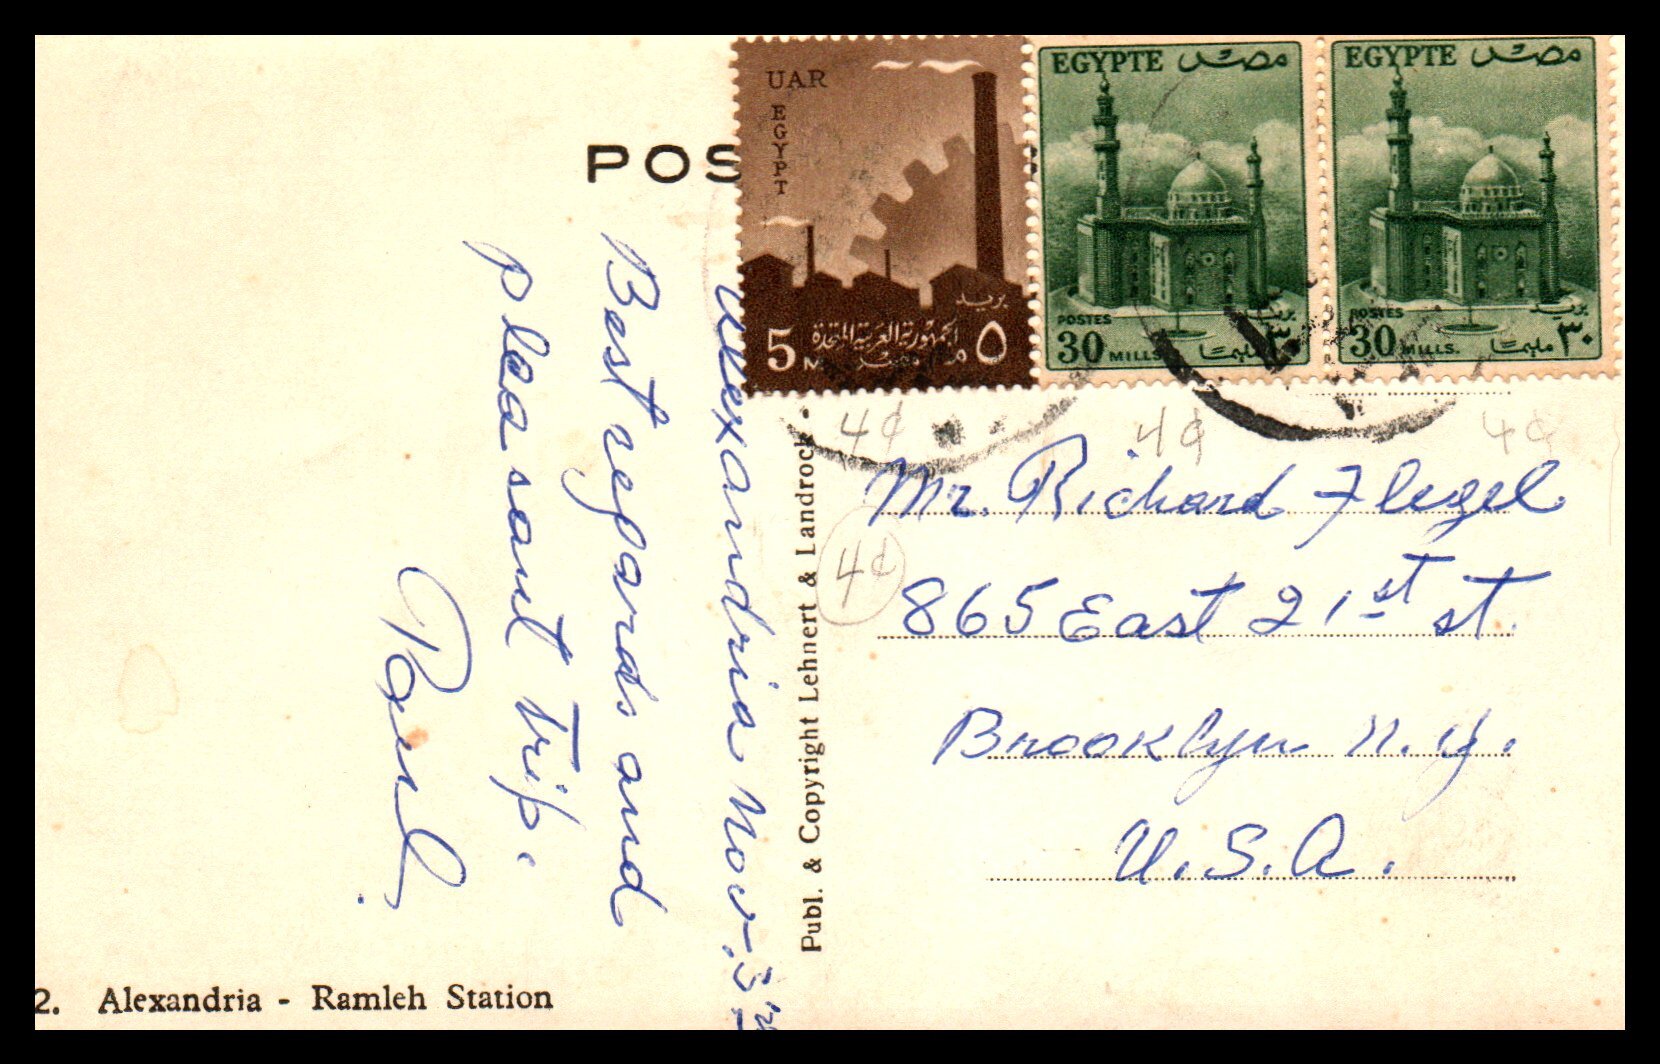 POS
UAR
EGYPT
بريد
الجمهورية العربية المتحدة
5 M
مصر
م ٥
EGYPTE مصر
POSTES بريد
30 MILLS. ٣٠ مليمًا
EGYPTE مصر
POSTES بريد
30 MILLS. ٣٠ مليمًا
4¢ 4¢ 4¢
4¢
Alexandria Nov. 3
Best regards and
pleasant trip.
Paul.
Publ. & Copyright Lehnert & Landrock -
Mr. Richard Flegel
865 East 21st st.
Brooklyn N.Y.
U.S.A.
2. Alexandria - Ramleh Station